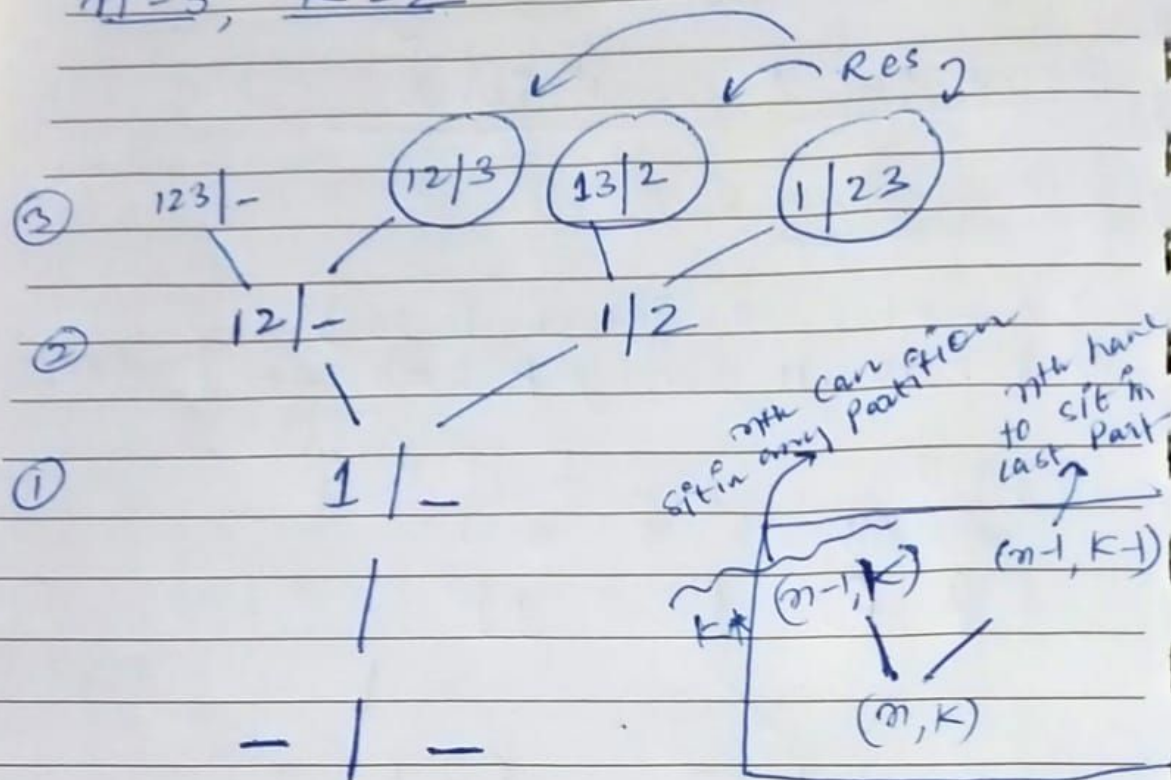 Res
③ 123|- 12|3 13|2 1|23
② 12|- 1|2
nth can
sit in any partition
nth have
to sit in
last Part
① 1|_
K* (n-1, K) (n-1, K-1)
(n, K)
- | -